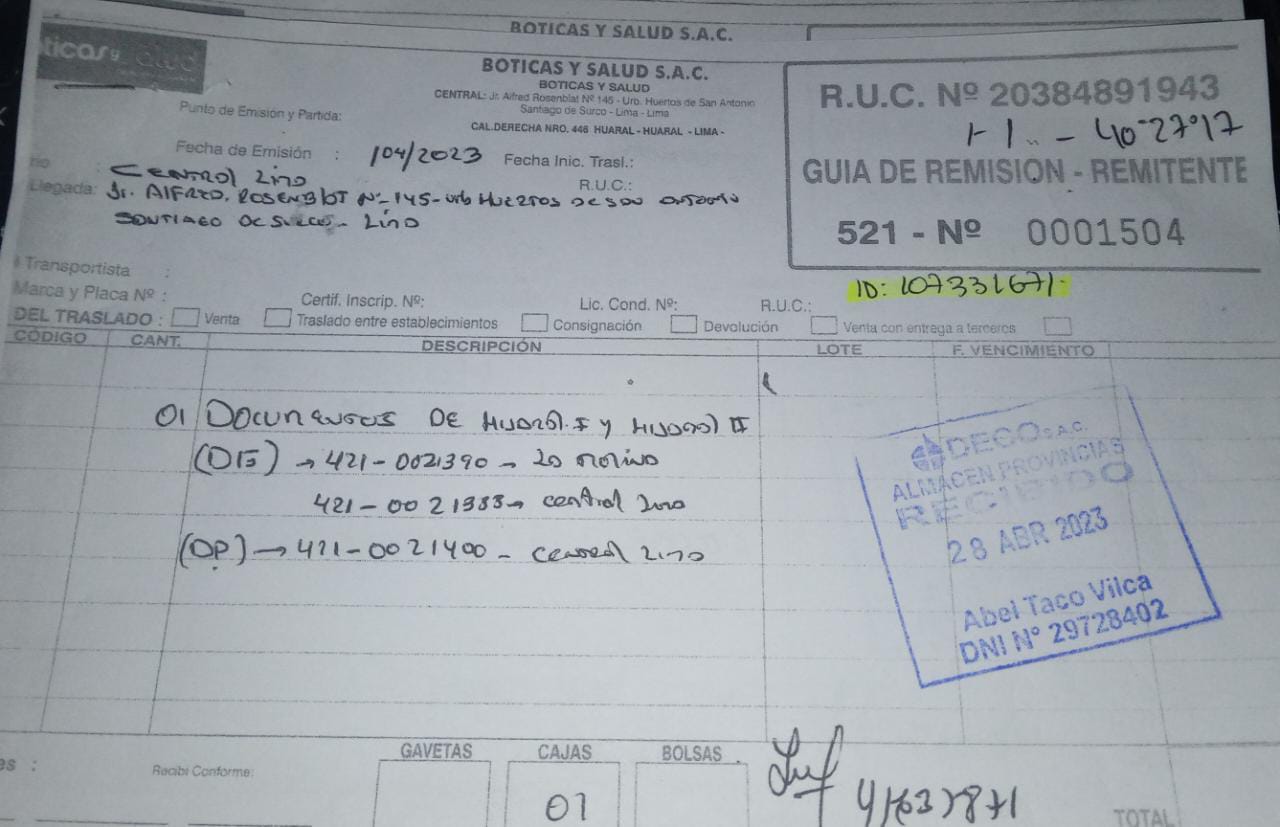 BOTICAS Y SALUD S.A.C.
ticas y Salud
BOTICAS Y SALUD S.A.C.
BOTICAS Y SALUD
CENTRAL: Jr. Alfred Rosenblat Nº 145 - Urb. Huertos de San Antonio
Santiago de Surco - Lima - Lima
CAL.DERECHA NRO. 446 HUARAL - HUARAL - LIMA -
Punto de Emisión y Partida:
Fecha de Emisión : 104/2023 Fecha Inic. Trasl.:
R.U.C.:
Central Lima
Llegada: Jr. ALFRED. ROSENBLAT Nº 145-urb Huertos de San Antonio
Santiago de Surco - Lima
R.U.C. Nº 20384891943
GUIA DE REMISION - REMITENTE
521 - Nº 0001504
ID: 107331671-
Transportista :
Marca y Placa Nº : Certif. Inscrip. Nº: Lic. Cond. Nº: R.U.C.:
DEL TRASLADO : Venta Traslado entre establecimientos Consignación Devolución Venta con entrega a terceros
CÓDIGO CANT. DESCRIPCIÓN LOTE F. VENCIMIENTO
01 Documentos DE Huaral I y Huaral II
421-0021390
421-0021383 → central Lima
(DP) → 421-0021400 - central Lima
DECO S.A.C.
ALMACEN PROVINCIAS
RECIBIDO
28 ABR 2023
Abel Taco Vilca
DNI Nº 29728402
GAVETAS CAJAS BOLSAS
es : Recibi Conforme:
01
TOTAL